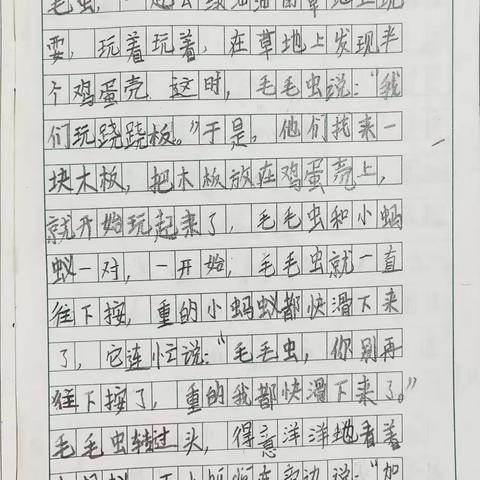 毛虫，一起去绿油油的草地上玩
耍，玩着玩着，在草地上发现半
个鸡蛋壳。这时，毛毛虫说：“我
们玩跷跷板。”于是，他们找来一
块木板，把木板放在鸡蛋壳上，
就开始玩起来了，毛毛虫和小蚂
蚁一对，一开始，毛毛虫就一直
往下按，重的小蚂蚁都快滑下来
了，它连忙说：“毛毛虫，你别再
往下按了，重的我都快滑下来了。”
毛毛虫转过头，得意洋洋地看着
说：“加